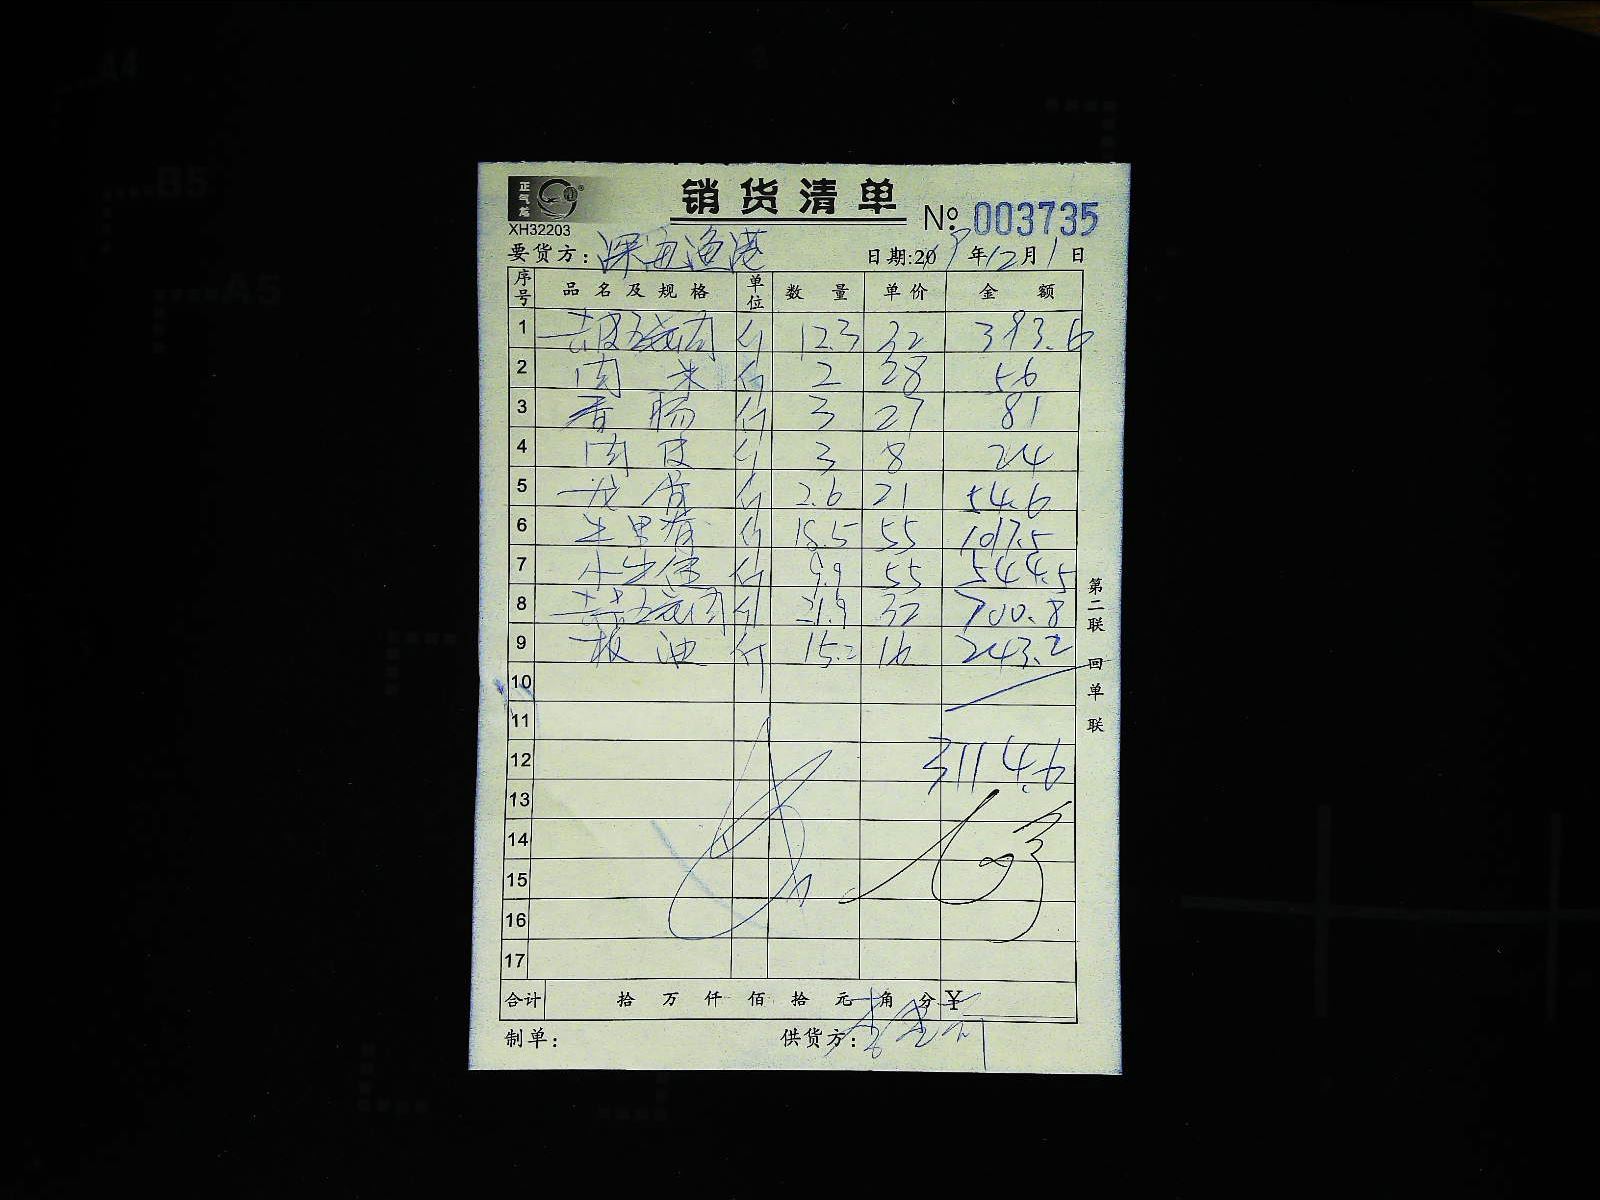 正气龙
销货清单
XH32203
No 003735
要货方: 深海渔港 日期:2019年12月1日
序号 品名及规格 单位 数量 单价 金额
1 去皮五花肉 斤 12.3 32 393.6
2 肉末 斤 2 28 56
3 香肠 斤 3 27 81
4 肉皮 斤 3 8 24
5 龙骨 斤 2.6 21 54.6
6 牛里脊 斤 18.5 55 1017.5
7 小牛 斤 9.9 55 544.5
8 五花肉 斤 21.9 32 700.8
9 板油 斤 15.2 16 243.2
10
11
12 3114.6
13
14
15
16
17
合计 拾 万 仟 佰 拾 元 角 分 ¥
制单: 供货方: 李
第二联 回单联
A4
B5
A5